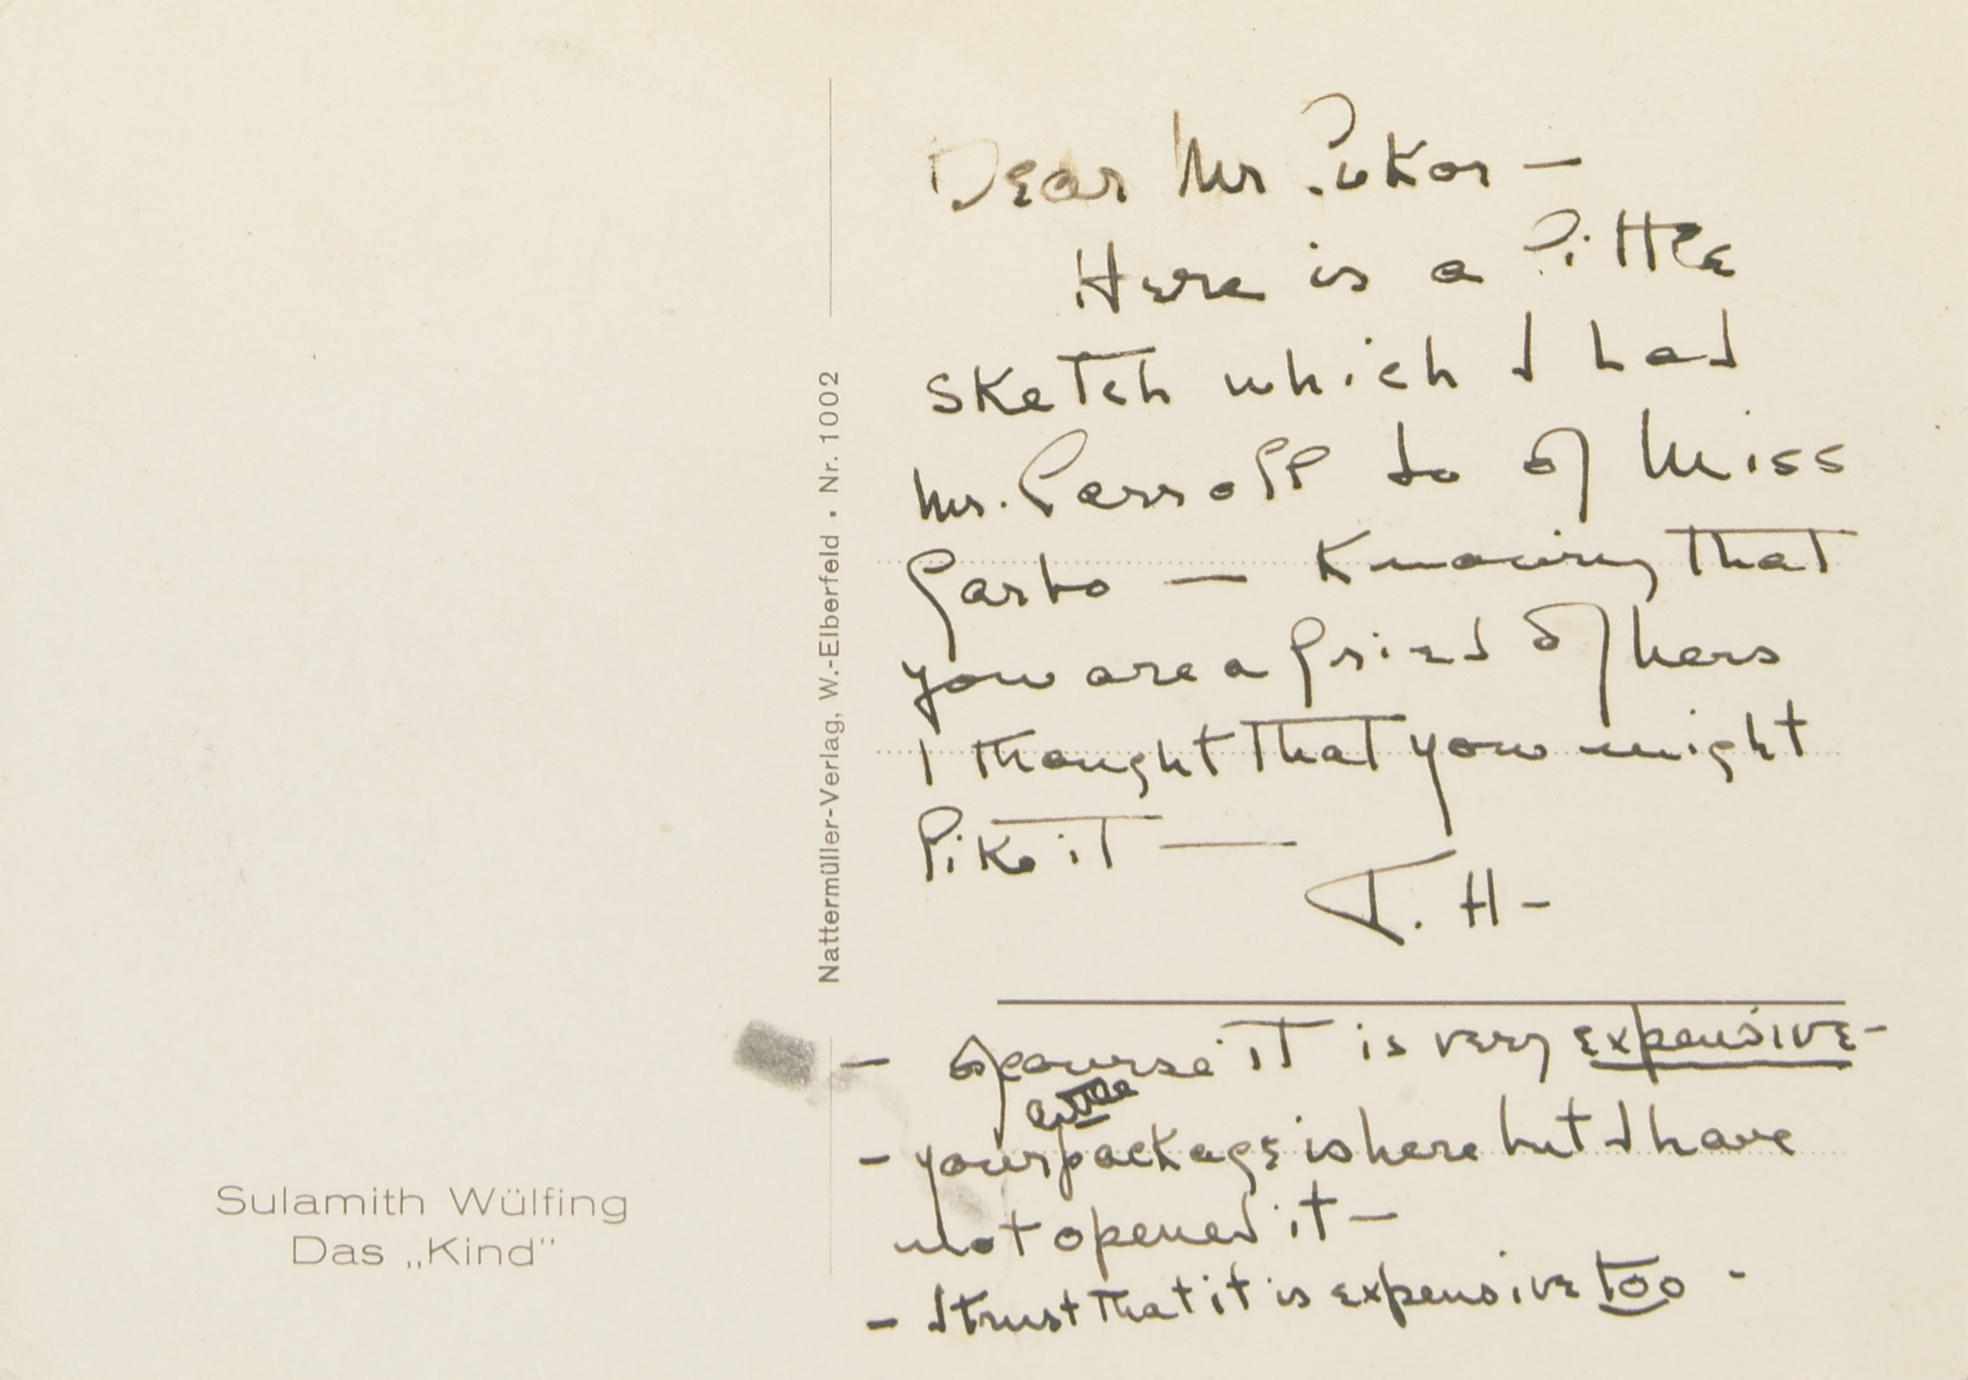 Dear Mr Cukor —
Here is a little
sketch which I had
Mr. Carroll do of Miss
Garbo — Knowing that
you are a fried of hers
I thought that you might
like it —
T. H -
- of course it is very expensive -
- your package is here but I have
not opened it —
- I trust that it is expensive too -
Nattermüller-Verlag, W.-Elberfeld . Nr. 1002
Sulamith Wülfing
Das „Kind"